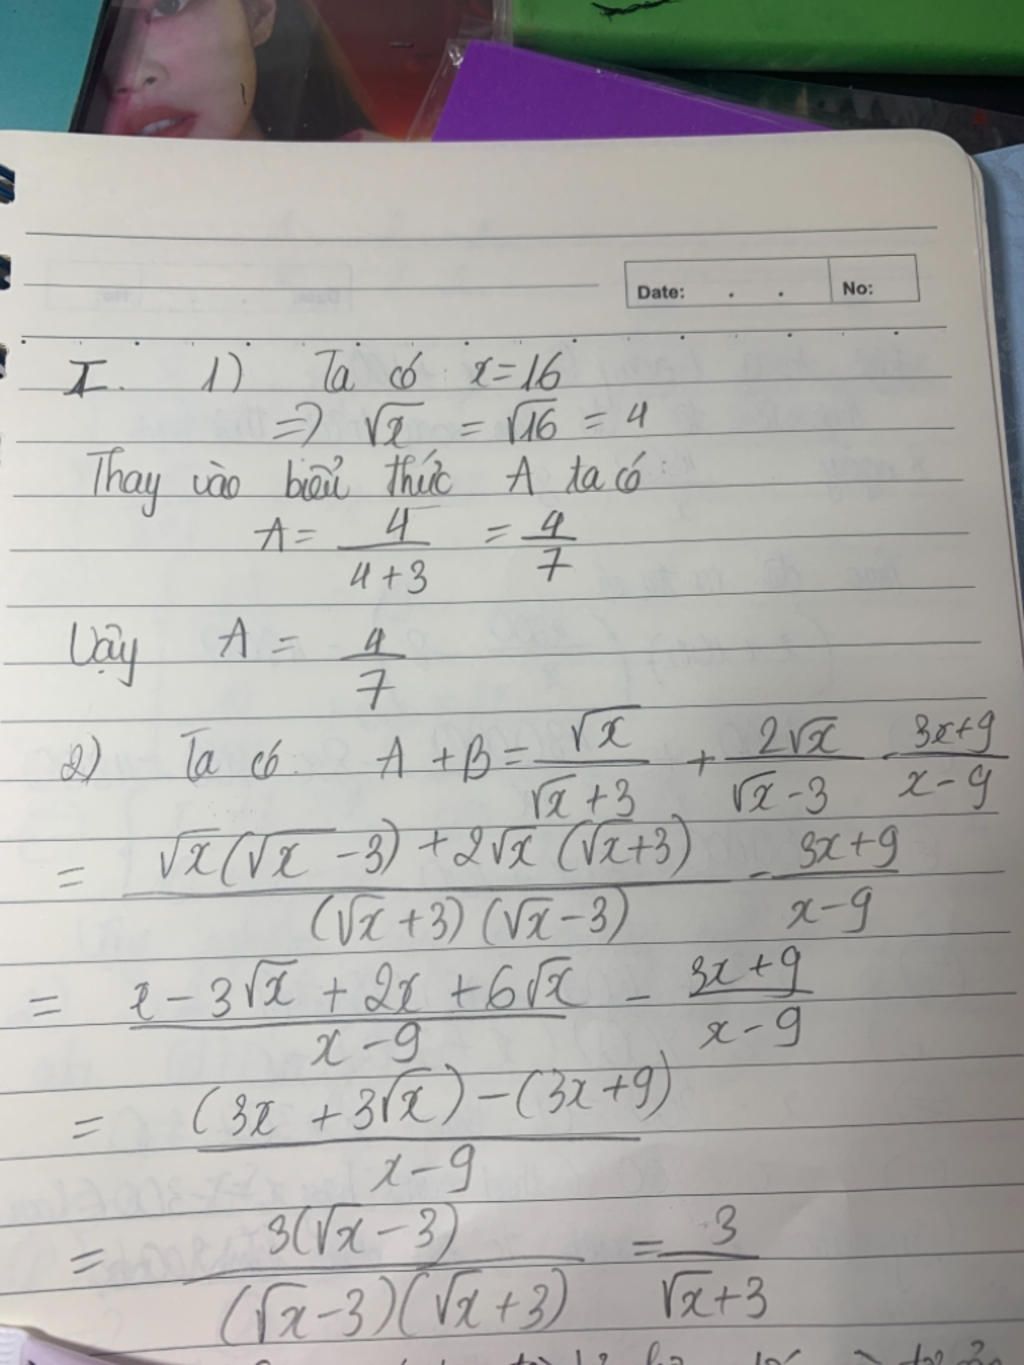 Date: . . No:
I. 1) Ta có: x=16
=> √x = √16 = 4
Thay vào biểu thức A ta có
A = 4/(4+3) = 4/7
Vậy A = 4/7
2) Ta có: A + B = √x/(√x+3) + 2√x/(√x-3) - (3x+9)/(x-9)
= (√x(√x-3)+2√x(√x+3))/((√x+3)(√x-3)) - (3x+9)/(x-9)
= (x-3√x+2x+6√x)/(x-9) - (3x+9)/(x-9)
= ((3x+3√x)-(3x+9))/(x-9)
= 3(√x-3)/((√x-3)(√x+3)) = 3/(√x+3)